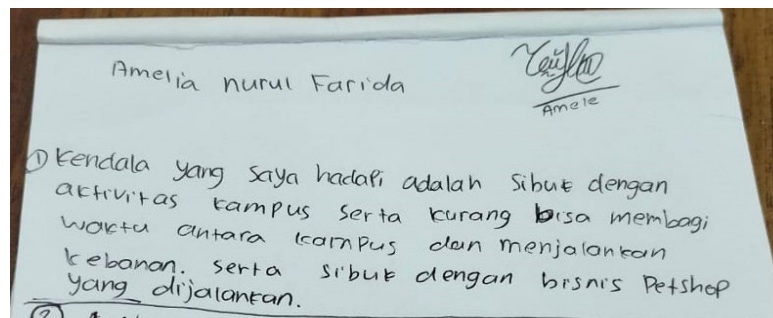 Amelia nurul Farida
Amele
① Kendala yang saya hadapi adalah sibuk dengan
aktivitas kampus serta kurang bisa membagi
waktu antara kampus dan menjalankan
kebanan. serta sibuk dengan bisnis Petshop
yang dijalankan.
②